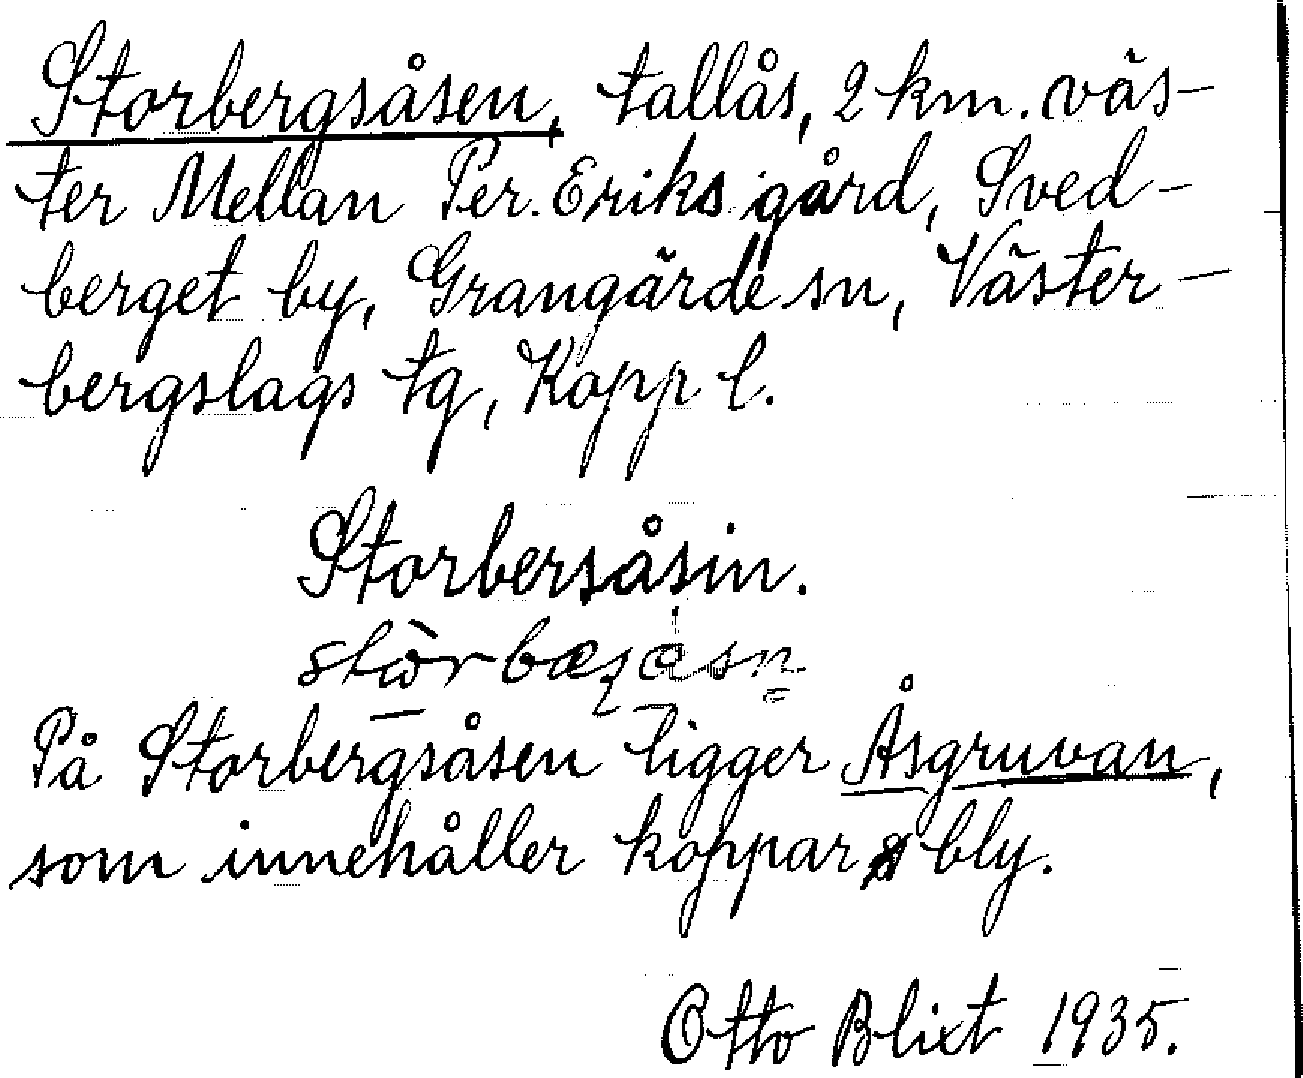 Storbergsåsen, tallås, 2 km. väs-
ter Mellan Per. Eriks gård, Sved-
berget by, Grangärde sn, Väster-
bergslags tg, Kopp l.
Storbersåsin.
På Storbergsåsen ligger Åsgruvan,
som innehåller koppar & bly.
Otto Blixt 1935.